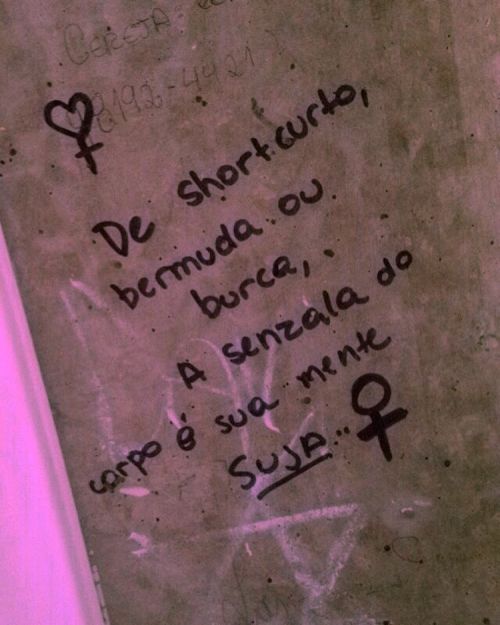 CEREJA
8192-4421
De short curto,
bermuda ou
burca,
A senzala do
corpo é sua mente
SUJA..